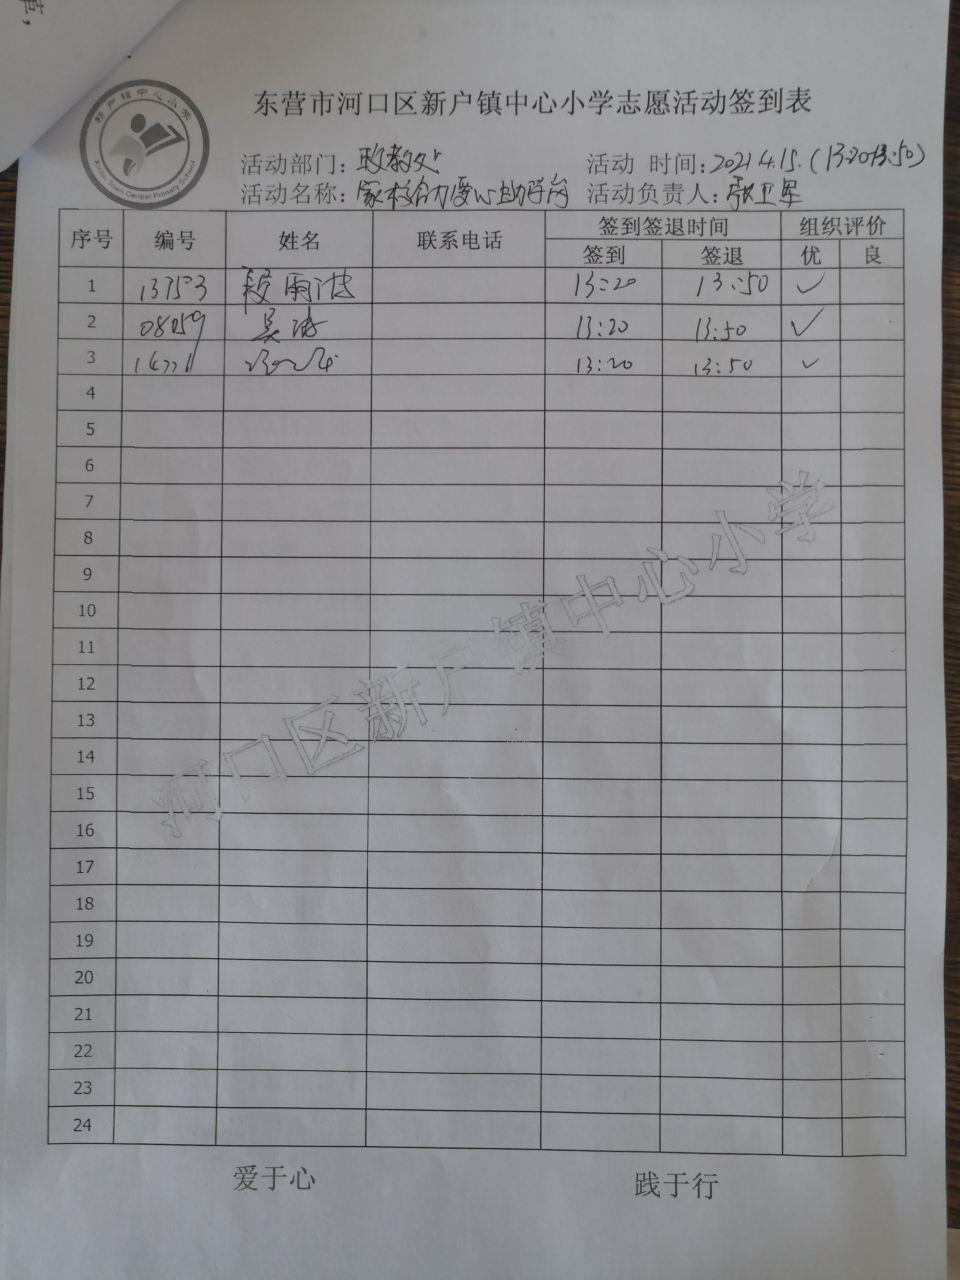 新户镇中心小学
Xinhu Town Central Primary School
东营市河口区新户镇中心小学志愿活动签到表
活动部门：政教处 活动 时间：2021.4.15.(13:20-13:50)
活动名称：家校合力爱心助学岗 活动负责人：张卫军
序号 编号 姓名 联系电话 签到签退时间 组织评价
签到 签退 优 良
1 13753 段雨 13:20 13:50 ✓
2 08059 吴涛 13:20 13:50 ✓
3 13:20 13:50 ✓
4
5
6
7
8
9
10
11
12
13
14
15
16
17
18
19
20
21
22
23
24
河口区新户镇中心小学
爱于心 践于行